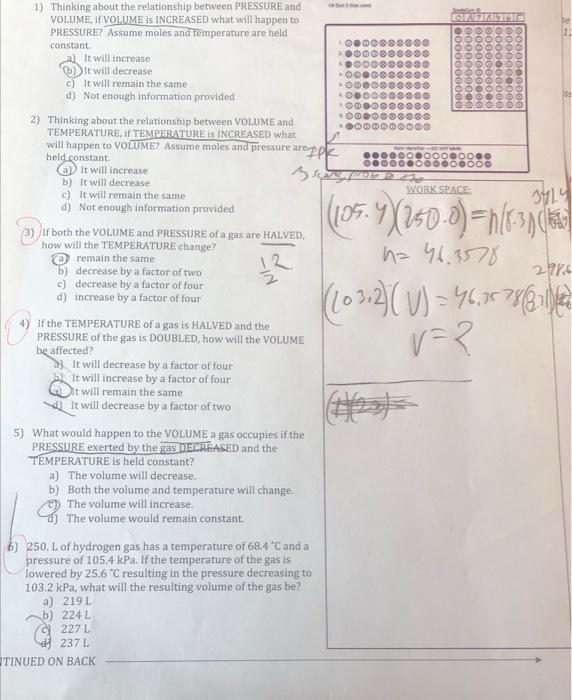 1) Thinking about the relationship between PRESSURE and
VOLUME, if VOLUME is INCREASED what will happen to
PRESSURE? Assume moles and temperature are held
constant.
a) It will increase
b) It will decrease
c) It will remain the same
d) Not enough information provided
2) Thinking about the relationship between VOLUME and
TEMPERATURE, if TEMPERATURE is INCREASED what
will happen to VOLUME? Assume moles and pressure are
held constant.
a) It will increase
b) It will decrease
c) It will remain the same
d) Not enough information provided
3) If both the VOLUME and PRESSURE of a gas are HALVED,
how will the TEMPERATURE change?
a) remain the same
b) decrease by a factor of two
c) decrease by a factor of four
d) increase by a factor of four
4) If the TEMPERATURE of a gas is HALVED and the
PRESSURE of the gas is DOUBLED, how will the VOLUME
be affected?
a) It will decrease by a factor of four
b) It will increase by a factor of four
c) It will remain the same
d) It will decrease by a factor of two
5) What would happen to the VOLUME a gas occupies if the
PRESSURE exerted by the gas DECREASED and the
TEMPERATURE is held constant?
a) The volume will decrease.
b) Both the volume and temperature will change.
c) The volume will increase.
d) The volume would remain constant.
6) 250. L of hydrogen gas has a temperature of 68.4 °C and a
pressure of 105.4 kPa. If the temperature of the gas is
lowered by 25.6 °C resulting in the pressure decreasing to
103.2 kPa, what will the resulting volume of the gas be?
a) 219 L
b) 224 L
c) 227 L
d) 237 L
WORK SPACE:
341.4
(105.4)(250.0) = n(8.31)(
n = 46.3578
298.6
(103.2)(V) = 46.3578(8.31)(
V = ?
12
2
TINUED ON BACK